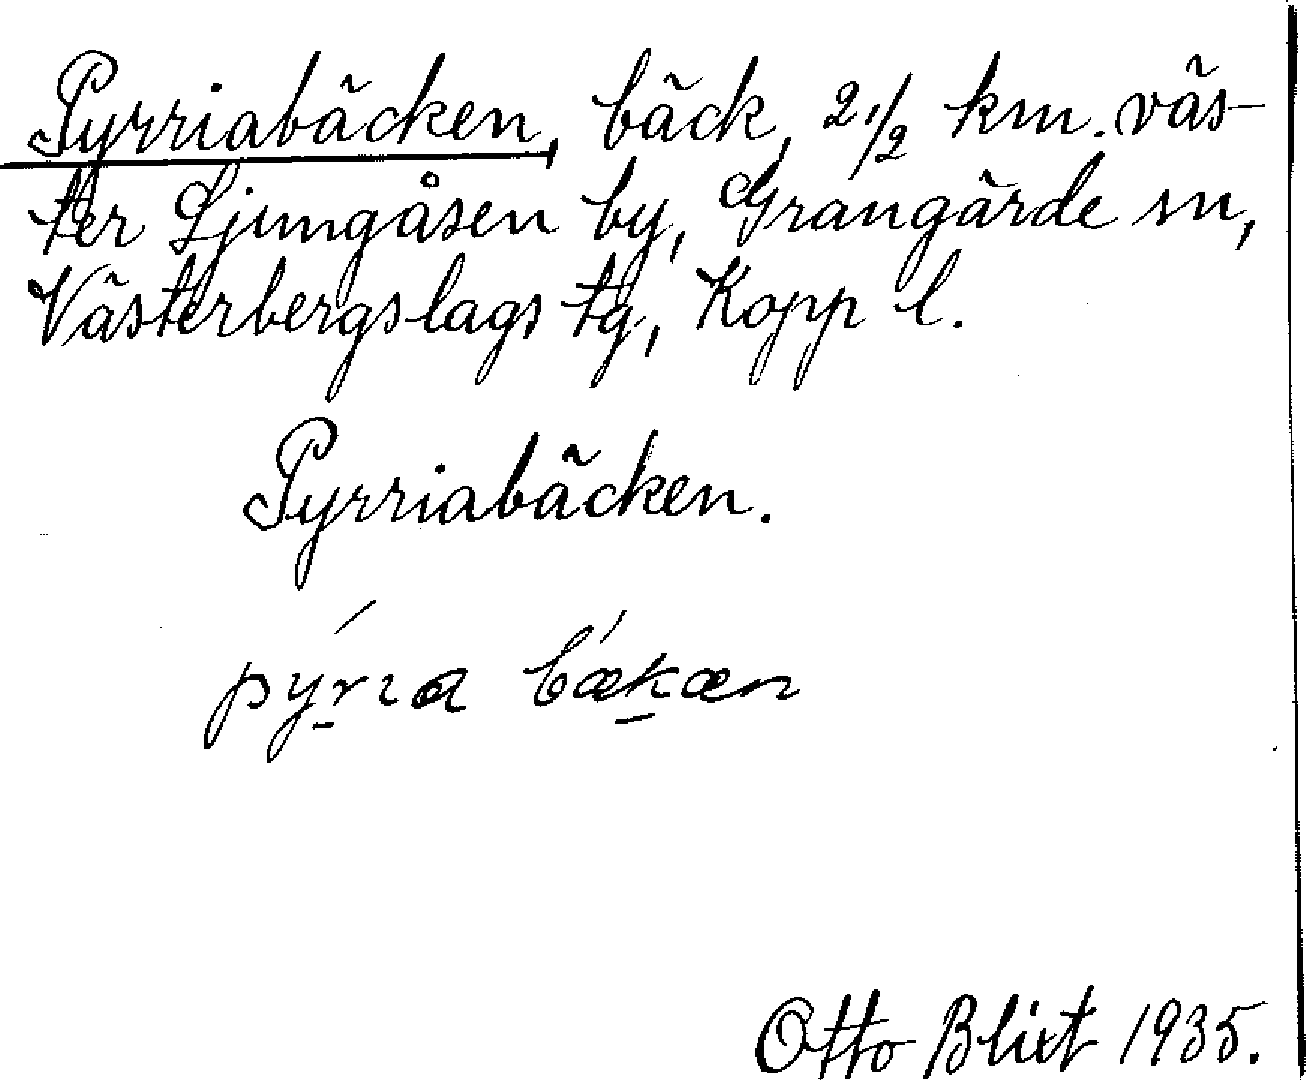 Pyrriabäcken, bäck, 2 1/2 km. väs-
ter Ljungåsen by, Grangärde sn,
Västerbergslags tg, Kopp l.
Pyrriabäcken.
pýria bækæn
Otto Blixt 1935.